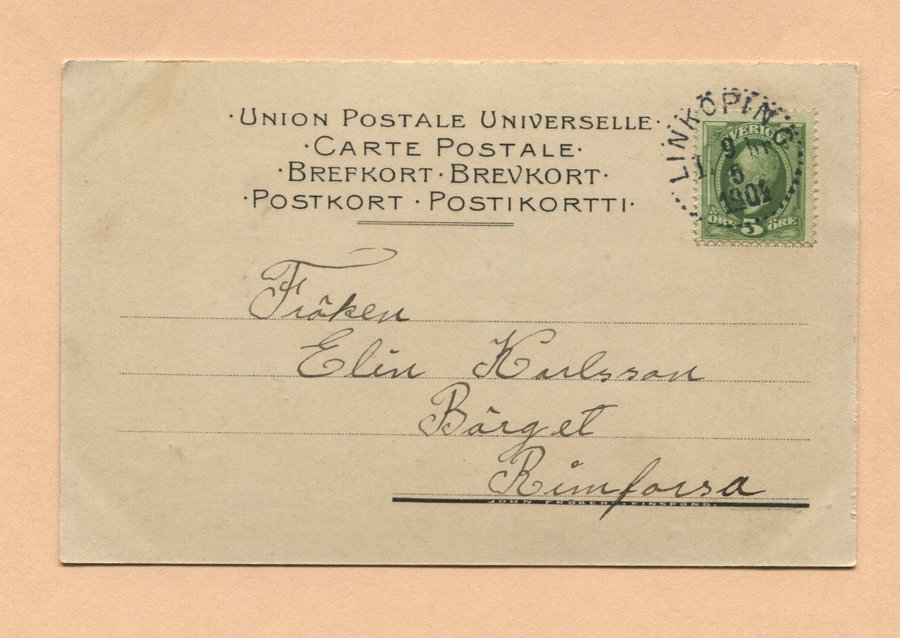 ·UNION POSTALE UNIVERSELLE·
·CARTE POSTALE·
·BREFKORT·BREVKORT·
·POSTKORT·POSTIKORTTI·
LINKÖPING
9
5
1901
SVERIGE
5
ÖRE ÖRE
Fröken
Elin Karlsson
Börget
Rimforsa
JOHN FRÖBERG, FINSPONG.